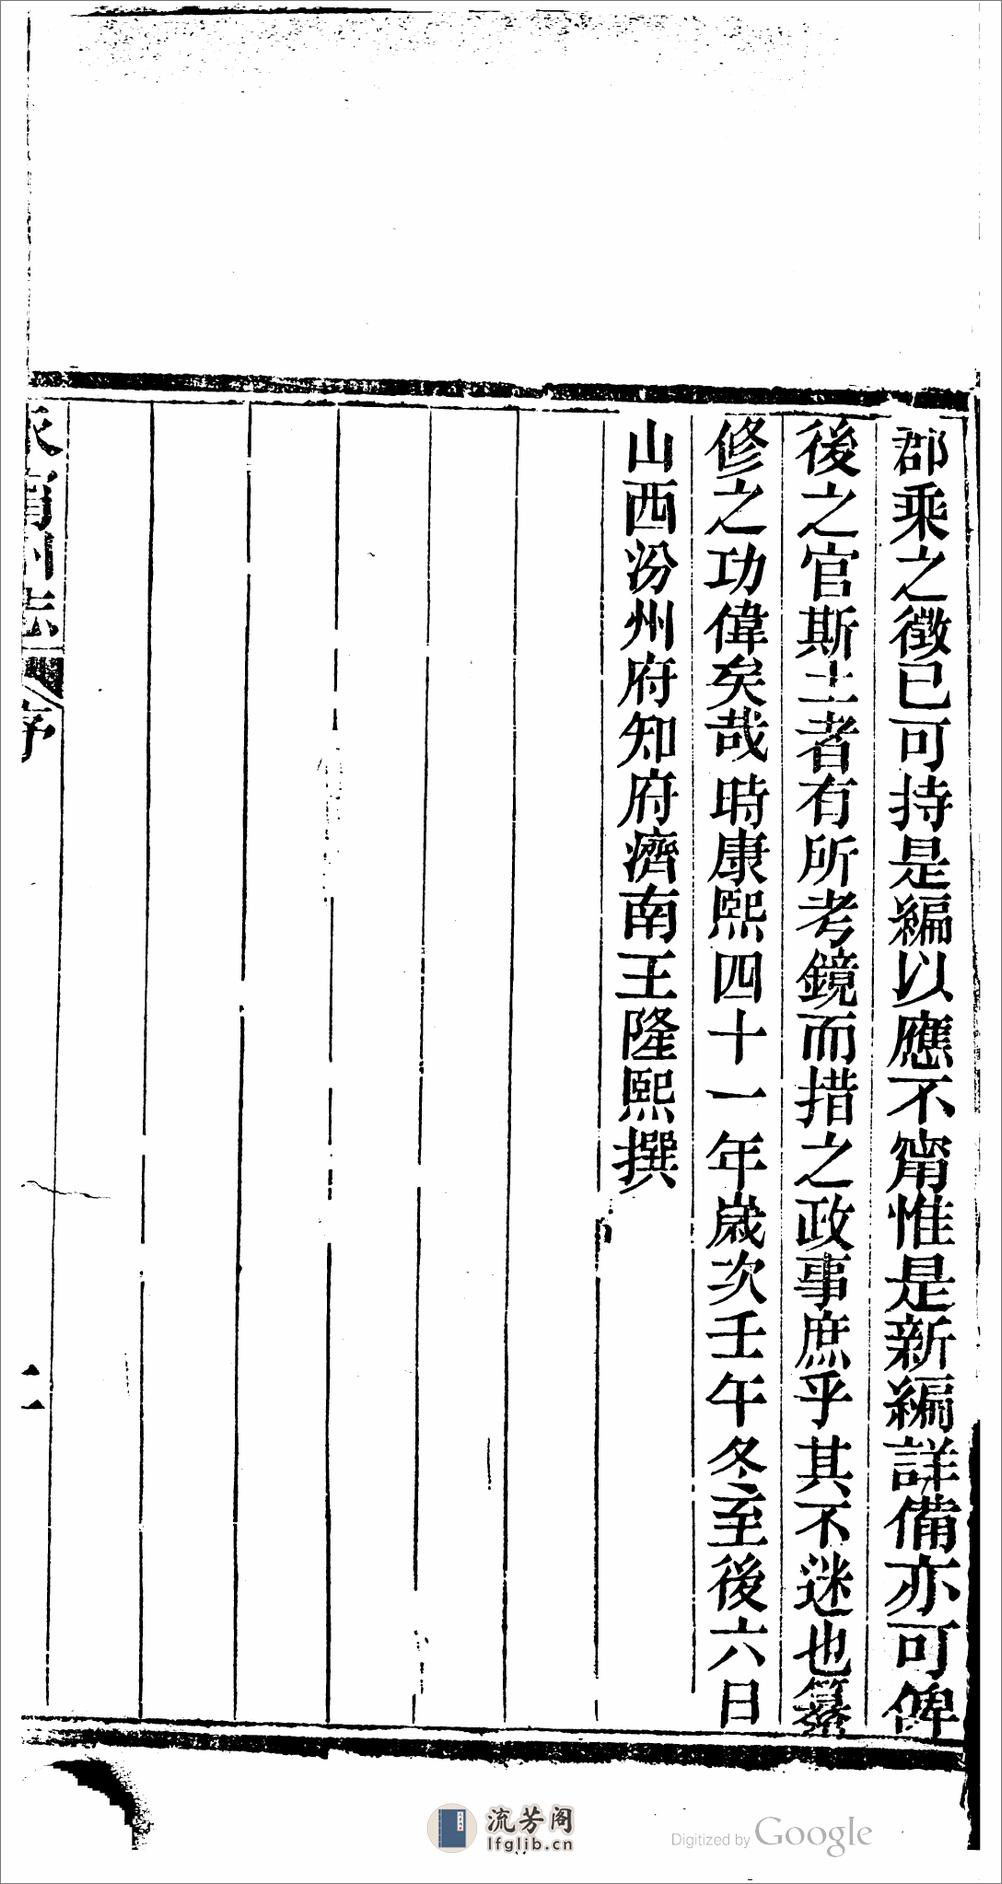 郡乘之徵已可持是編以應不甯惟是新編詳備亦可俾
後之官斯土者有所考鏡而措之政事庶乎其不迷也纂
修之功偉矣哉時康熙四十一年歲次壬午冬至後六日
山西汾州府知府濟南王隆熙撰
永甯州志 序 二
流芳阁
lfglib.cn
Digitized by Google